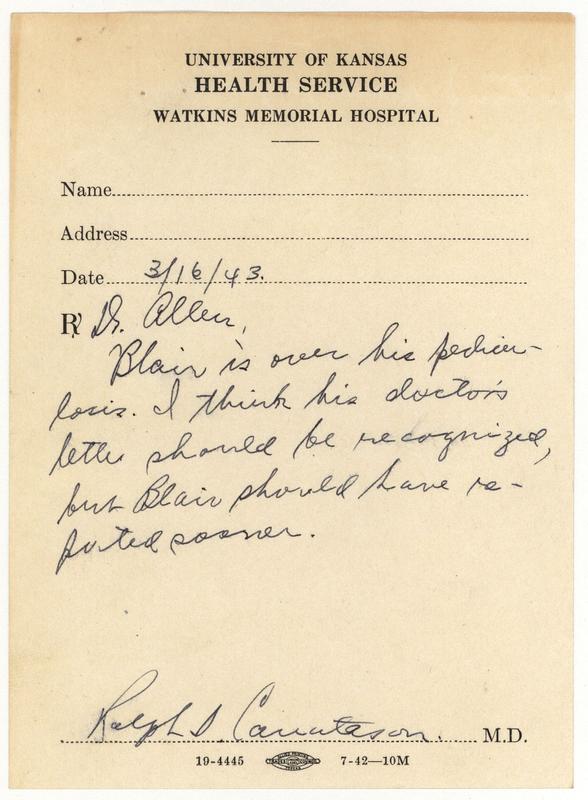 UNIVERSITY OF KANSAS
HEALTH SERVICE
WATKINS MEMORIAL HOSPITAL
Name
Address
Date 3/16/43.
℞ Dr. Allen,
Blair is over his pedicu-
losis. I think his doctor's
letter should be recognized,
but Blair should have re-
ported sooner.
Ralph I. Canuteson. M.D.
19-4445 7-42—10M